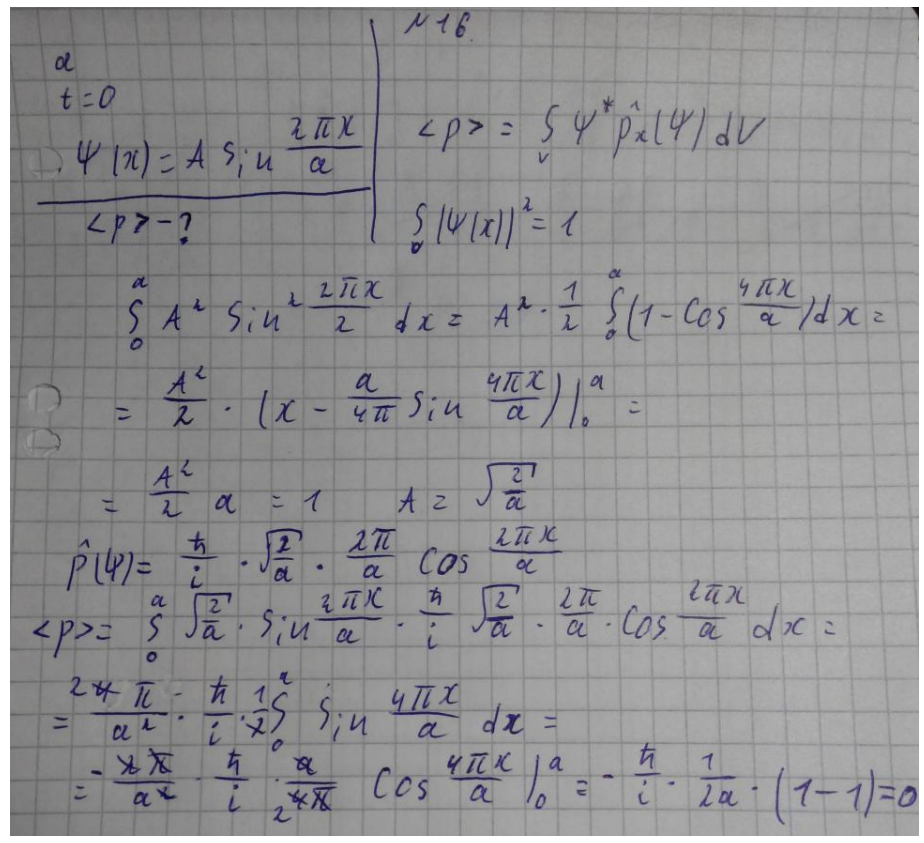 №16.
a
t = 0
Ψ(x) = A Sin 2πx/a
<p> - ?
<p> = ∫_v Ψ* p̂x(Ψ) dV
∫_0 |Ψ(x)|² = 1
∫_0^a A² Sin² 2πx/2 dx = A² · 1/2 ∫_0^a (1 - Cos 4πx/a) dx =
= A²/2 · (x - a/4π Sin 4πx/a)|_0^a =
= A²/2 a = 1   A = √(2/a)
p̂(Ψ) = ħ/i · √(2/a) · 2π/a Cos 2πx/a
<p> = ∫_0^a √(2/a) · Sin 2πx/a · ħ/i √(2/a) · 2π/a · Cos 2πx/a dx =
= 2 4 π/a² · ħ/i · 1/2 ∫_0^a Sin 4πx/a dx =
= - 2π/a² · ħ/i · a/2 4π Cos 4πx/a |_0^a = - ħ/i · 1/2a · (1 - 1) = 0